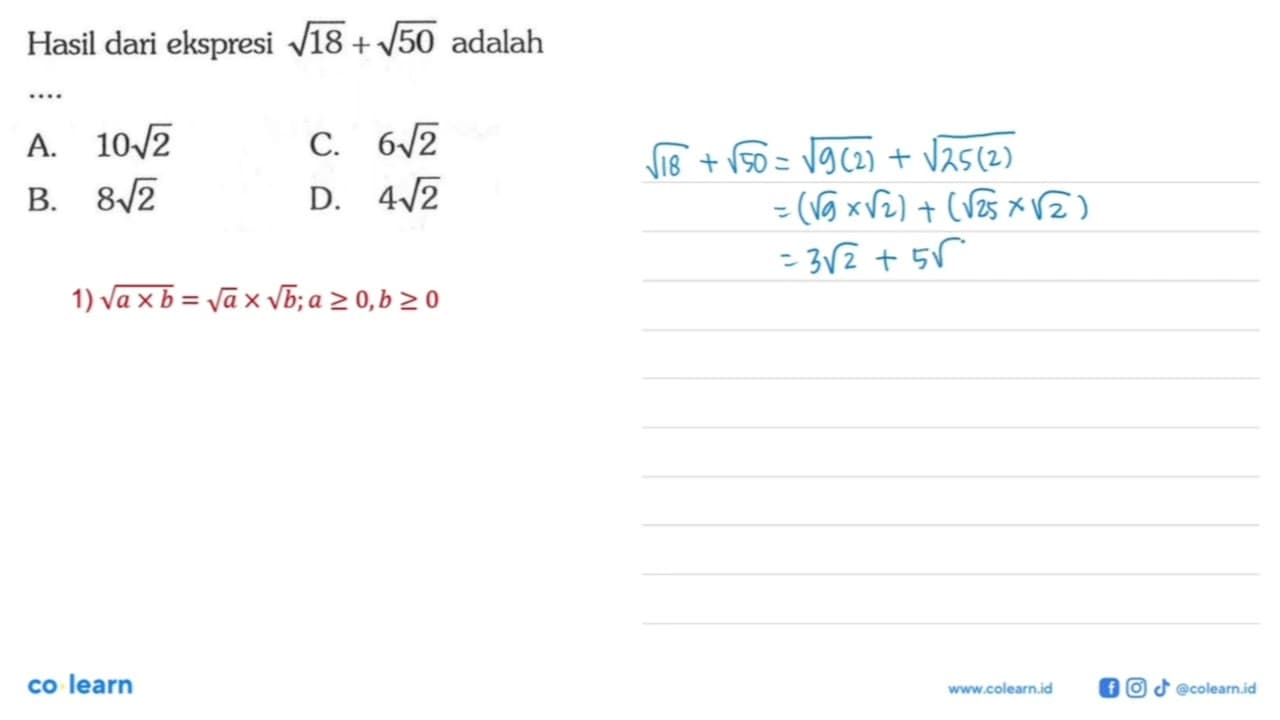 Hasil dari ekspresi √18 + √50 adalah
....
A. 10√2 C. 6√2
B. 8√2 D. 4√2
1) √a × b = √a × √b; a ≥ 0, b ≥ 0
√18 + √50 = √9(2) + √25(2)
= (√9 × √2) + (√25 × √2)
= 3√2 + 5√
co learn
www.colearn.id @colearn.id